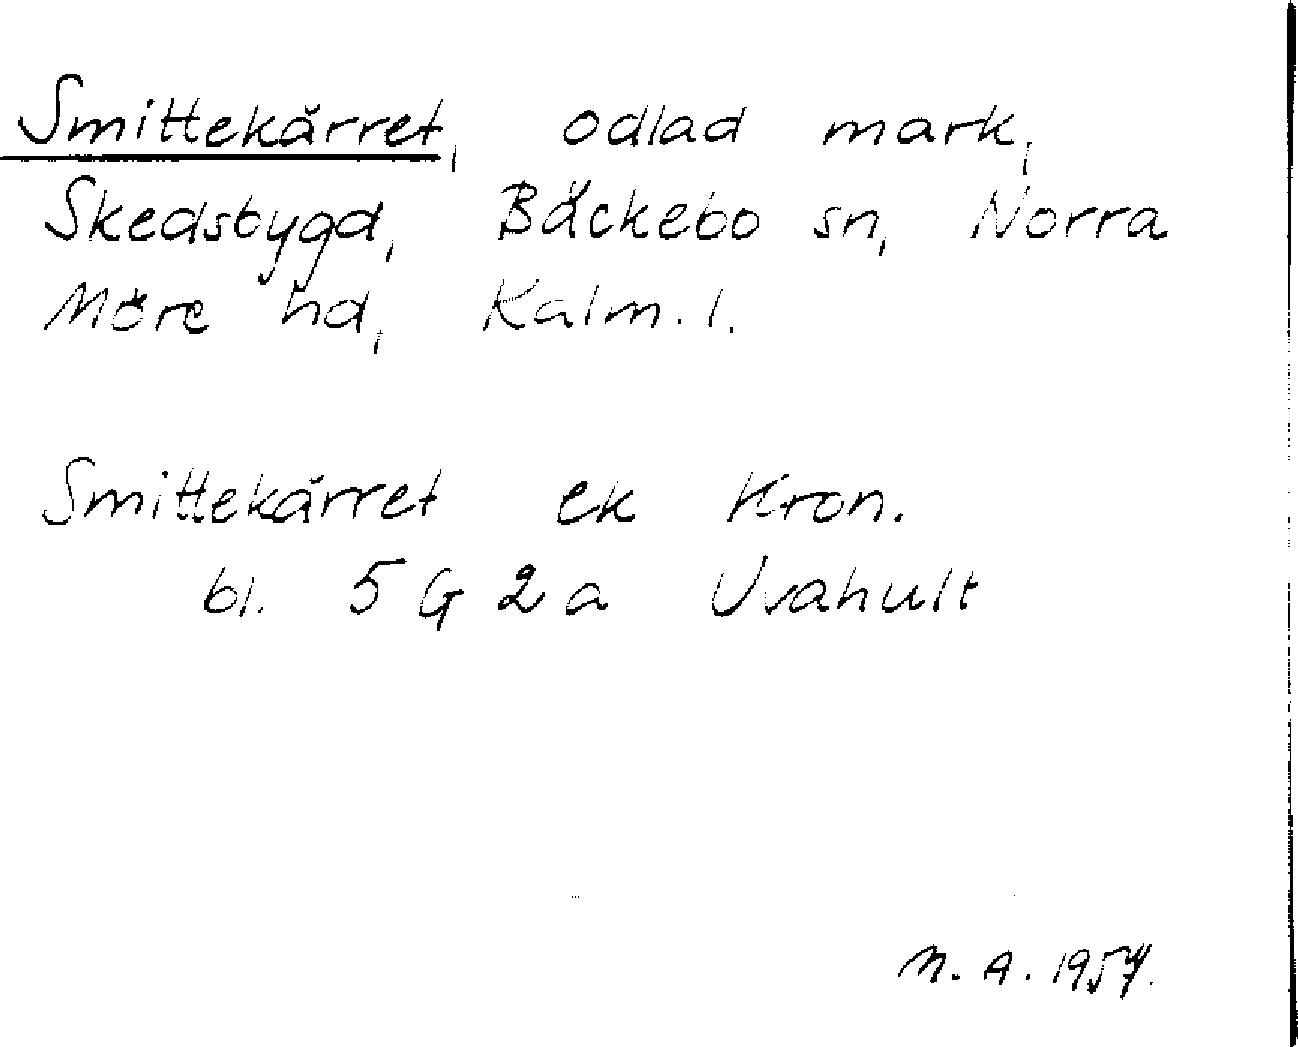 Smittekärret, odlad mark,
Skedsbygd, Bäckebo sn, Norra
Möre hd, Kalm. l.
Smittekärret ek Kron.
bl. 5 G 2 a Uvahult
N. A. 1957.